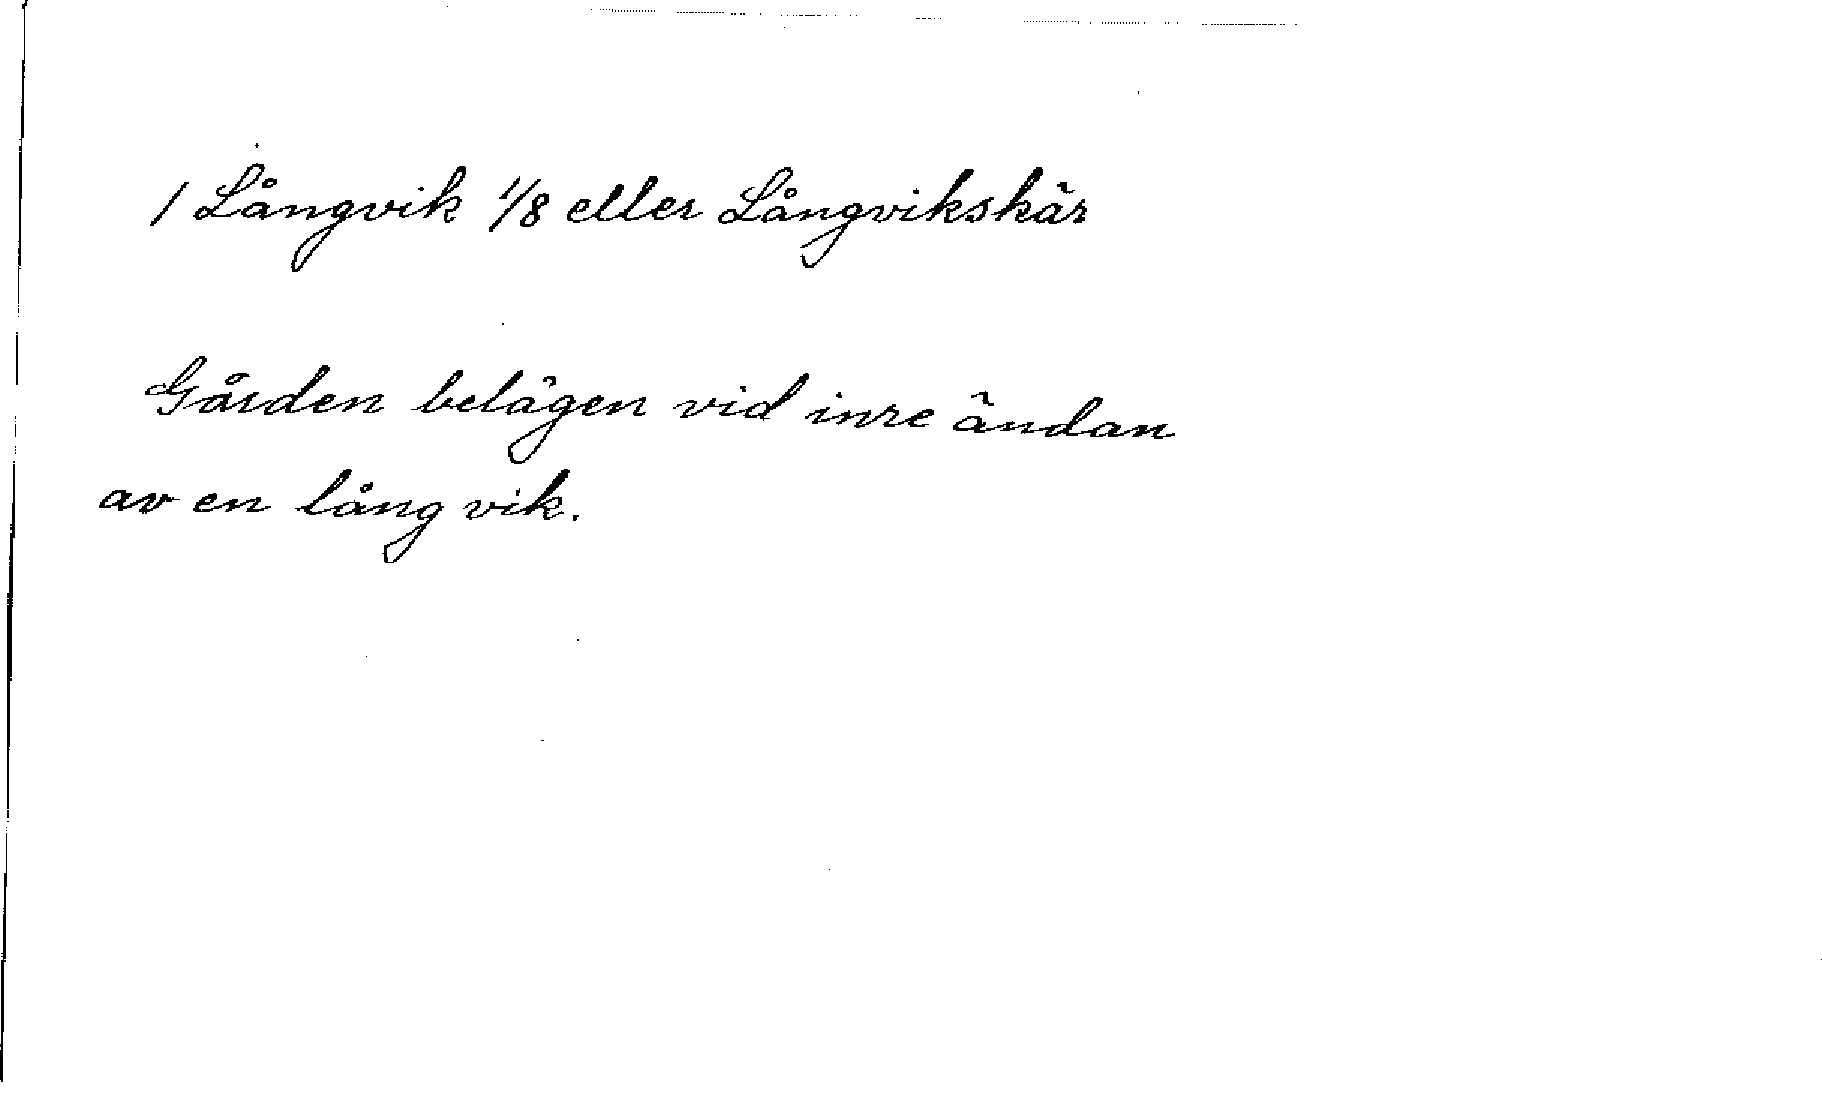 1 Långvik 1/8 eller Långvikskär
Gården belägen vid inre ändan
av en lång vik.